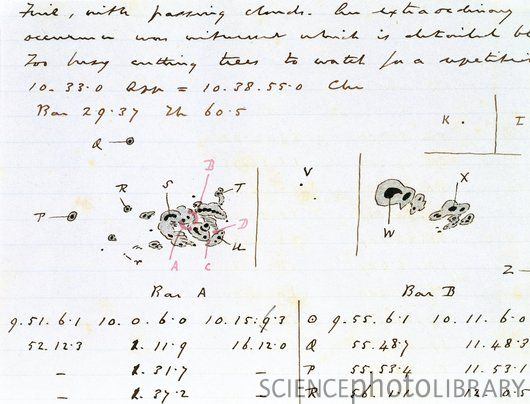 Fine, with passing clouds. An extraordinary
occurrence was witnessed which is detailed be
Too busy cutting trees to watch for a repetition
10. 33. 0 App = 10. 38. 55. 0
Bar 29.37 Th 60.5
K I
Q B
R S T V X
P D W
A C U
Z
Bar A Bar B
9. 51. 6. 1 10. 0. 6. 0 10. 15. 9. 3 ⊙ 9. 55. 6. 1 10. 11. 6. 0
52. 12. 3 2. 11. 9 16. 12. 0 Q 55. 48. 7 11. 48. 3
– 2. 31. 7 – P 55. 53. 4 11. 53. 1
– 2. 37. 2 – R
SCIENCEphotoLIBRARY